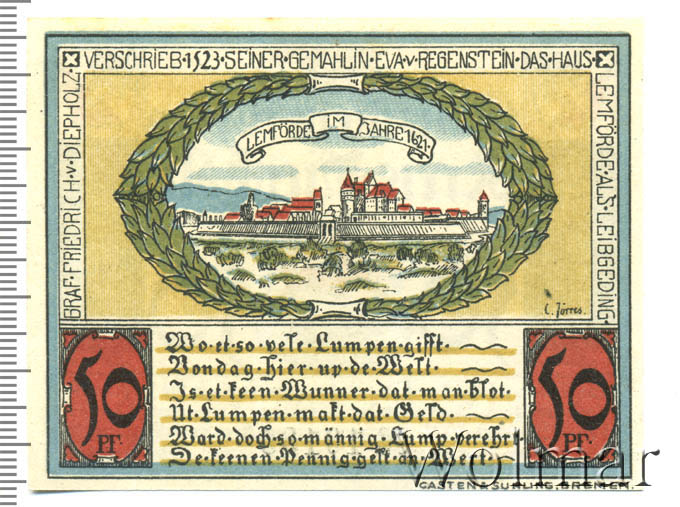 GRAF·FRIEDRICH·v·DIEPHOLZ·
VERSCHRIEB·1523·SEINER·GEMAHLIN·EVA·v·REGENSTEIN·DAS·HAUS·
LEMFÖRDE·ALS·LEIBGEDING·
LEMFÖRDE IM JAHRE·1621·
C. Jörres.
50
PF.
Wo·et·so·vele·Lumpen·gifft·
Vondag·hier·up·de·Welt·
Is·et·keen·Wunner·dat·man·blot·
Ut·Lumpen·makt·dat·Geld·
Ward·doch·so·männig·Lump·verehrt·
De·keenen·Pennig·gelt·an·Wert·
50
PF.
GASTEN & SUHLING, BREMEN.
Wolmar